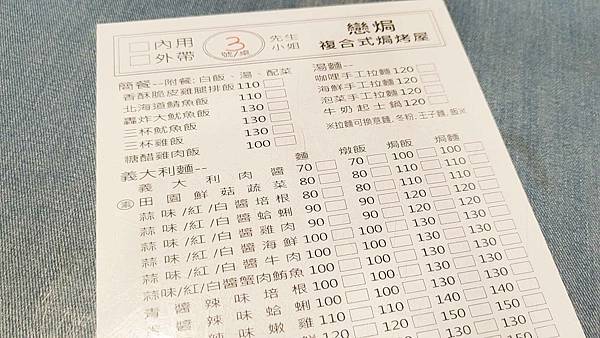 內用
外帶
3
號/桌
先生
小姐
戀焗
複合式焗烤屋
簡餐--附餐:白飯、湯、配菜
香酥脆皮雞腿排飯 110
北海道鯖魚飯 110
轟炸大魷魚飯 130
三杯魷魚飯 130
三杯雞飯 130
糖醋雞肉飯 100
湯麵--
咖哩手工拉麵 120
海鮮手工拉麵 120
泡菜手工拉麵 120
牛奶起士鍋 120
※拉麵可換意麵,冬粉,王子麵,飯※
義大利麵-- 麵 燉飯 焗飯 焗麵
義大利肉醬 70 70 100 100
素 田園鮮菇蔬菜 80 80 110 110
蒜味/紅/白醬培根 80 80 110 110
蒜味/紅/白醬蛤蜊 90 90 120 120
蒜味/紅/白醬雞肉 90 90 120 120
蒜味/紅/白醬海鮮 100 100 130 130
蒜味/紅/白醬牛肉 100 100 130 130
蒜味/紅/白醬蟹肉鮪魚 100 100 130 130
青醬辣味培根 100